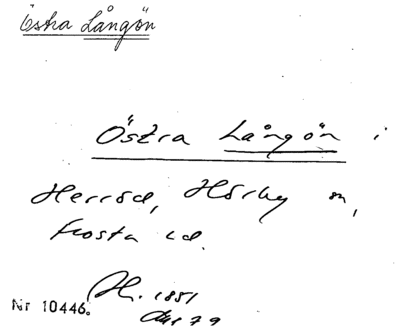 Östra Långön
Östra Långön i
Herröd, Hörby sn,
Frosta hd.
H. 1851
Nr 10446.